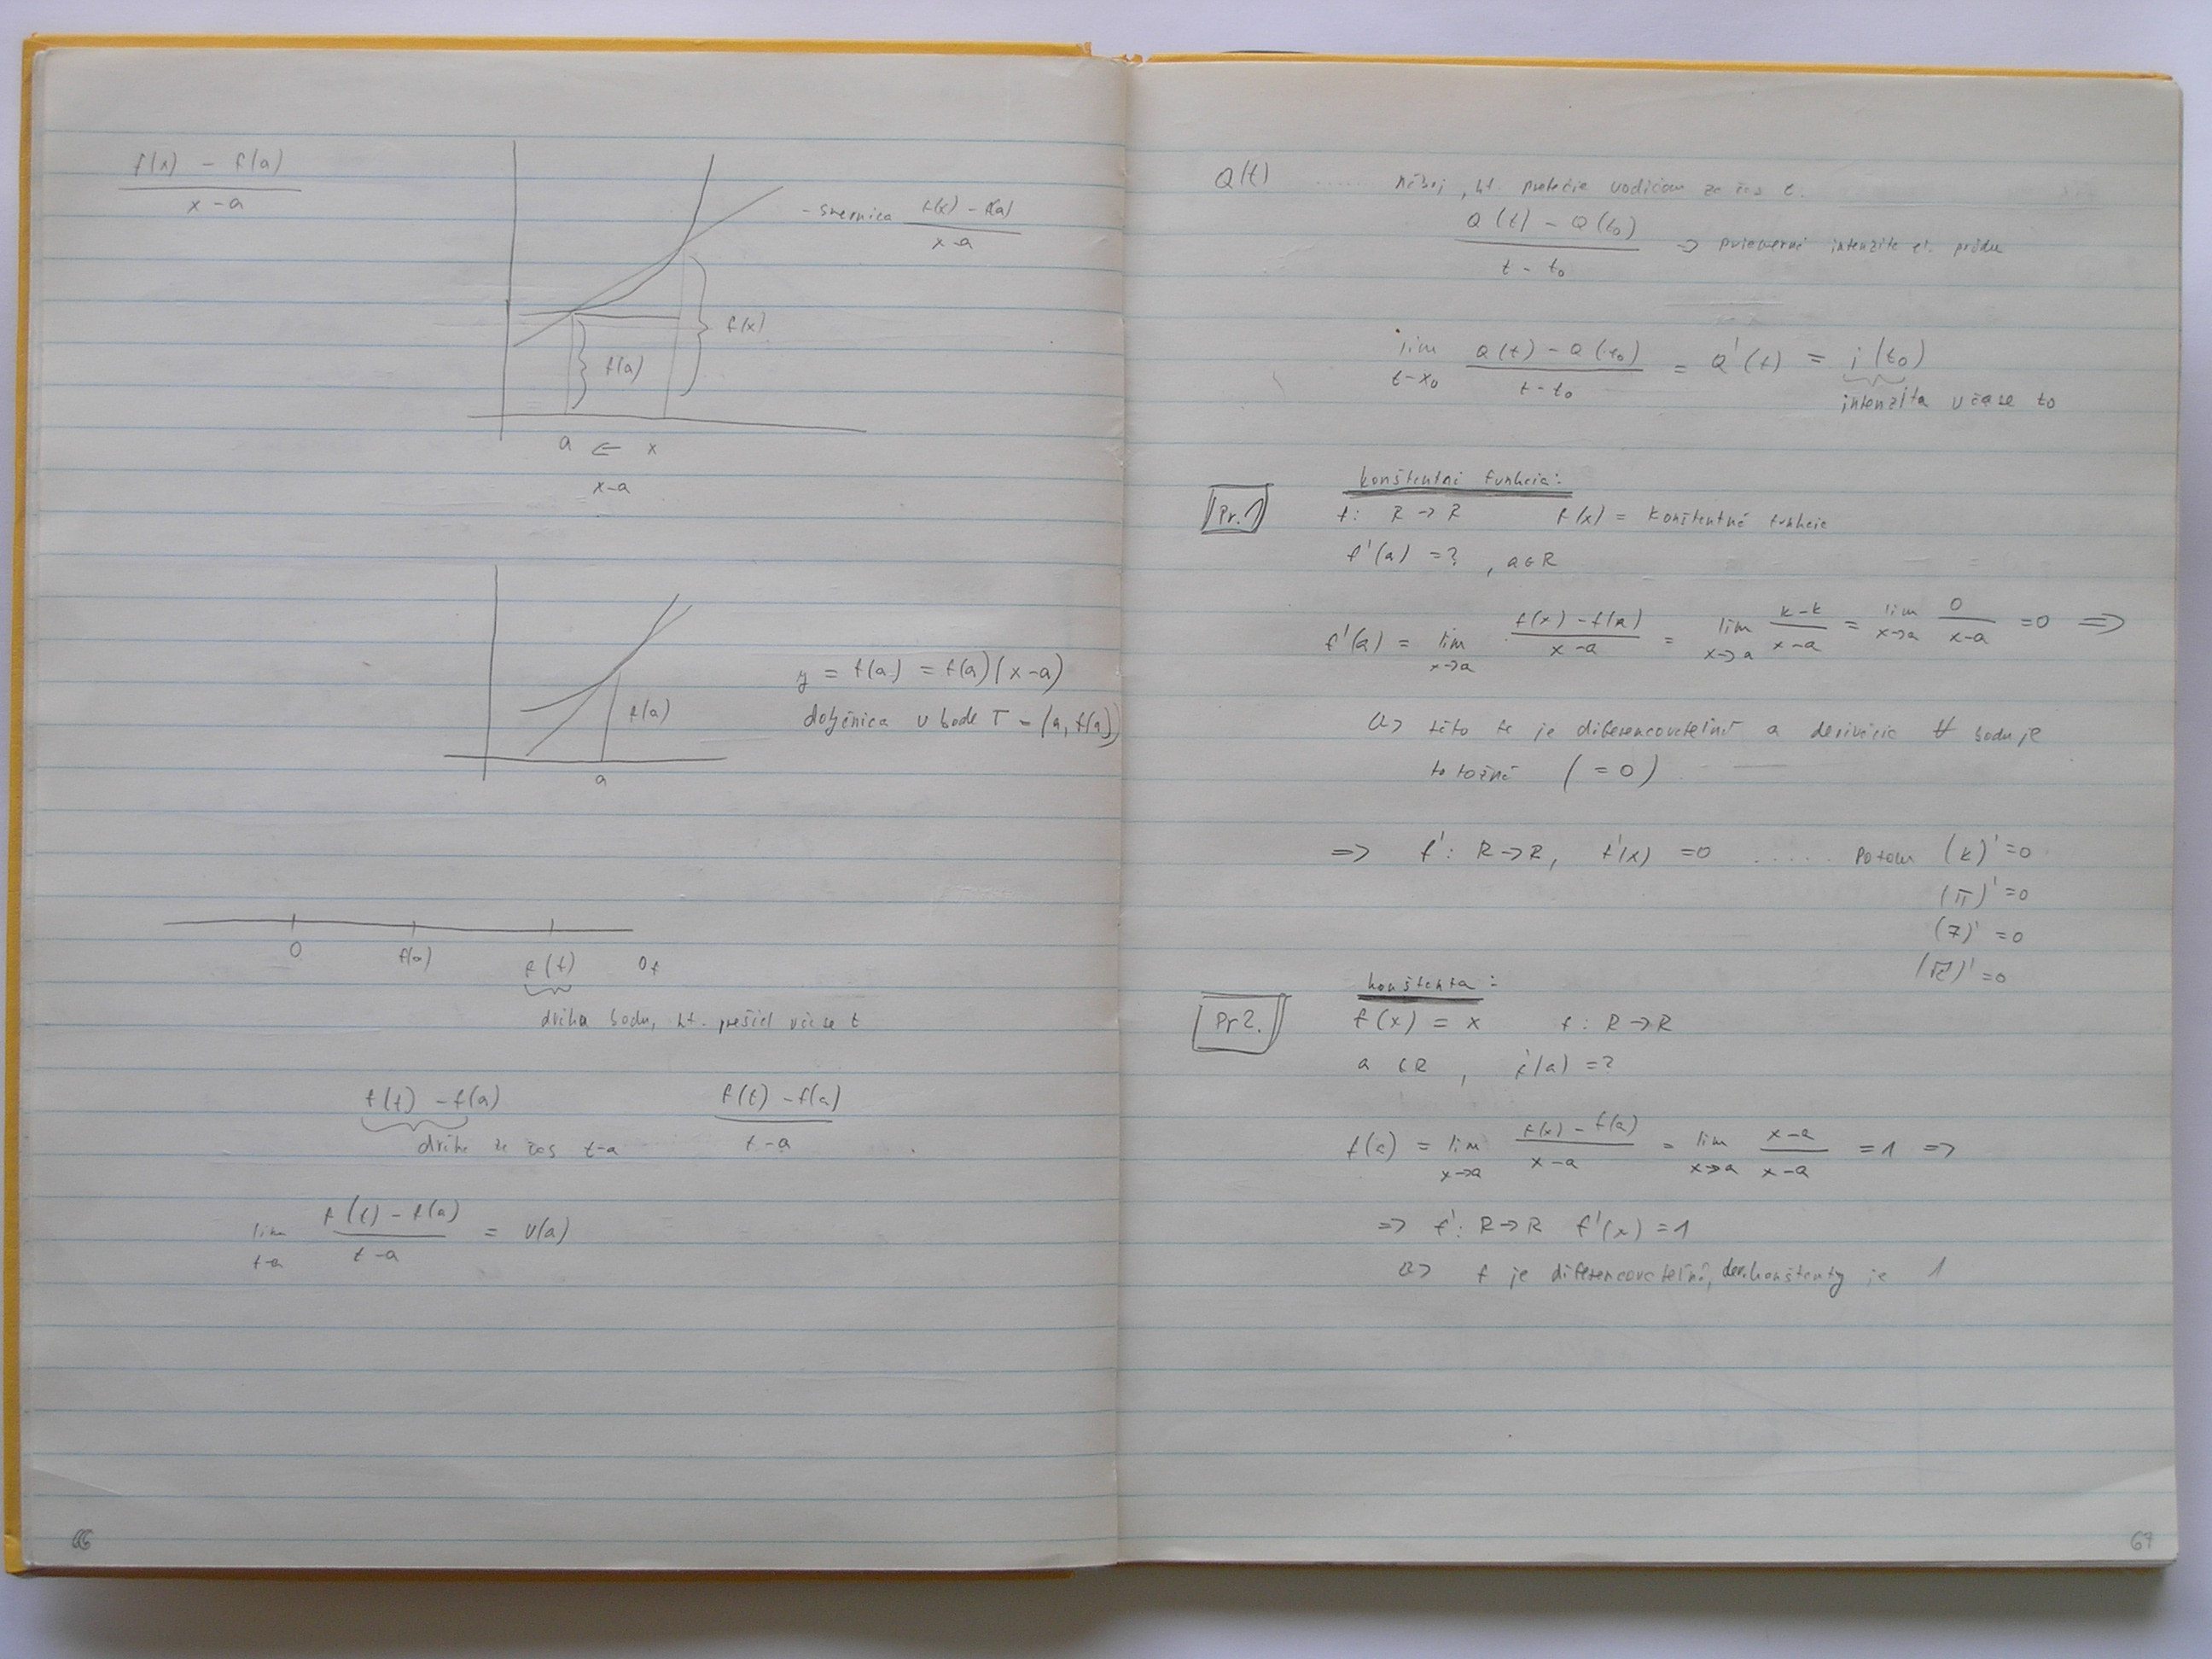 f(x) - f(a)
x - a
- smernica f(x) - f(a)
x - a
f(x)
f(a)
a ← x
x-a
y = f(a) = f(a)(x-a)
f(a)
dotyčnica v bode T = (a, f(a))
a
0 f(a) f(t)
dráha bodu, kt. prešiel v čase t
f(t) - f(a) f(t) - f(a)
t-a
dráha za čas t-a
lim f(t) - f(a) = v(a)
t-a t-a
66
Q(t) ..... náboj, kt. pretečie vodičom za čas t.
Q(t) - Q(t0) => priemerná intenzita el. prúdu
t - t0
lim Q(t) - Q(t0) = Q'(t) = i(t0)
t-x0 t-t0
intenzita v čase t0
Pr.1 konštantná funkcia:
f: R -> R f(x) = konštantná funkcia
f'(a) = ? , a∈R
f'(a) = lim f(x) - f(a) = lim k-k = lim 0 = 0 =>
x->a x-a x->a x-a x->a x-a
=> táto je diferencovateľná a derivácia ∀ bodu je
totožná (=0)
=> f': R->R, f'(x) = 0 ..... Potom (k)' = 0
(π)' = 0
(7)' = 0
Pr 2. konštanta:
f(x) = x f: R->R
a ∈R , f'(a) = ?
f(a) = lim f(x) - f(a) = lim x-a = 1 =>
x->a x-a x->a x-a
=> f': R->R f'(x) = 1
=> f je diferencovateľná, der. konštanty je 1
67